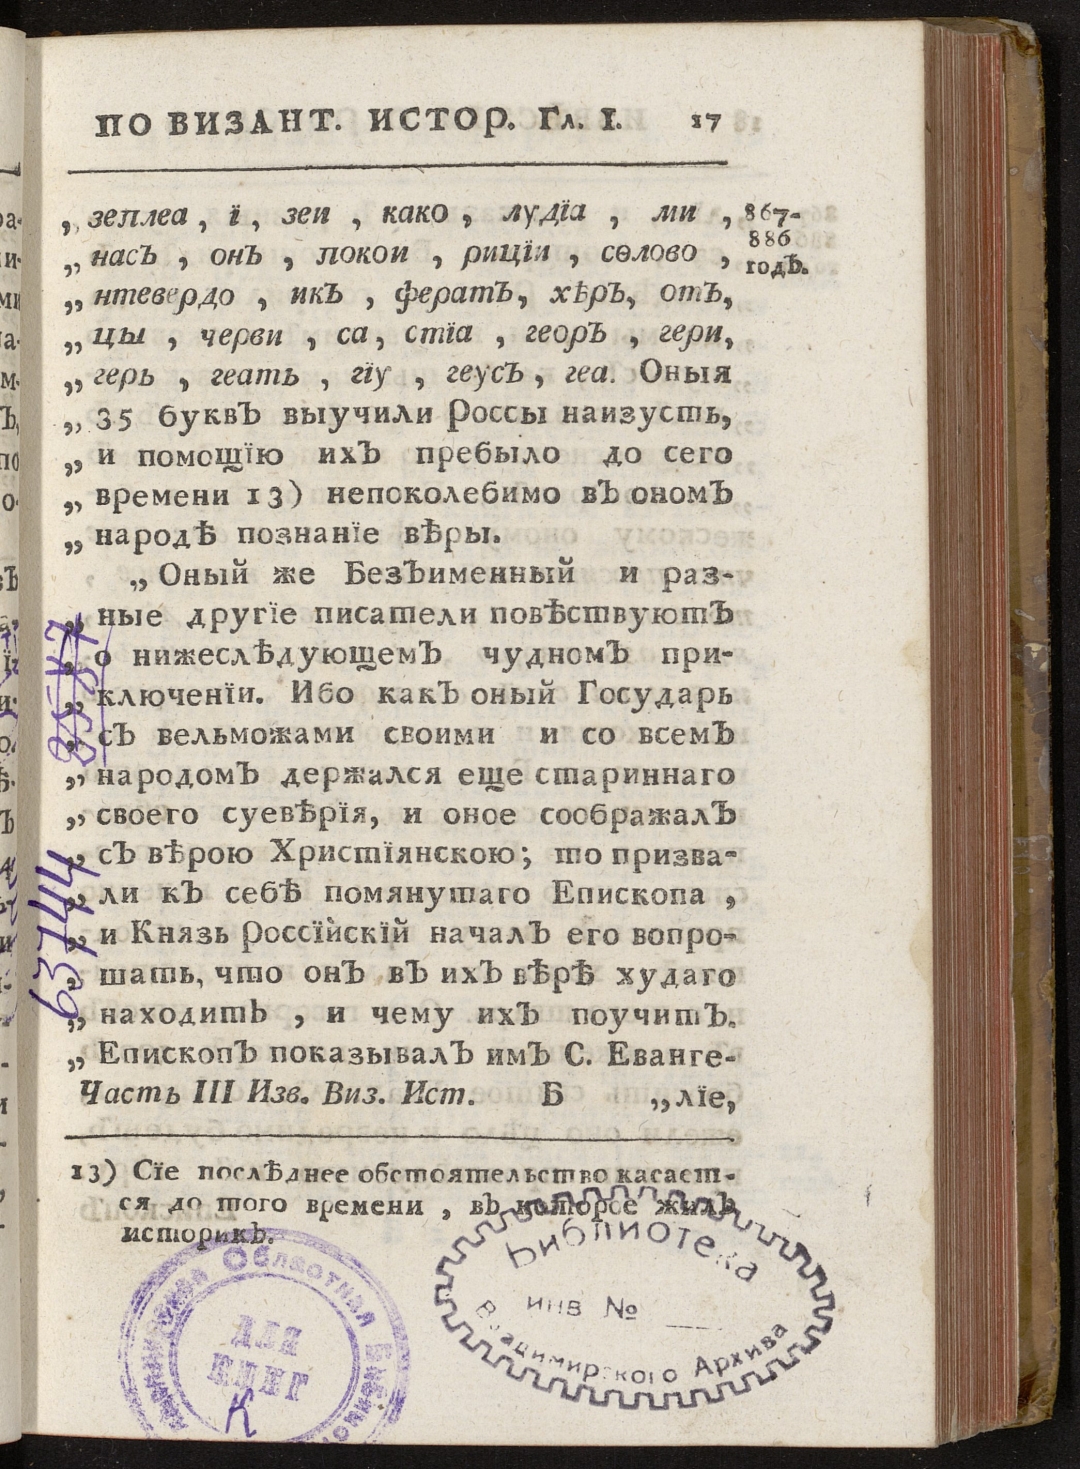 ПО ВИЗАНТ. ИСТОР. Гл. I. 17
„ зеплеа, ї, зеи, како, лудїа, ми,
867-
886
годѣ.
„ насъ, онъ, покои, рицїи, сѳлово,
„ нтевердо, икъ, фератъ, хѣръ, отъ,
„ цы, черви, са, стїа, георъ, гери,
„ герь, геать, гїу, геусъ, геа. Оныя
„ 35 буквъ выучили Россы наизусть,
„ и помощїю ихъ пребыло до сего
„ времени 13) непоколебимо въ ономъ
„ народѣ познанїе вѣры.
„ Оный же Безъименный и раз-
„ ные другїе писатели повѣствуютъ
„ о нижеслѣдующемъ чудномъ при-
„ ключенїи. Ибо какъ оный Государь
„ съ вельможами своими и со всемъ
„ народомъ держался еще стариннаго
„ своего суевѣрїя, и оное соображалъ
„ съ вѣрою Христїянскою; то призва-
„ ли къ себѣ помянутаго Епископа,
„ и Князь Россїйскїй началъ его вопро-
„ шать, что онъ въ ихъ вѣрѣ худаго
„ находитъ, и чему ихъ поучитъ.
„ Епископъ показывалъ имъ С. Еванге-
Часть III Изв. Виз. Ист. Б „лїе,
13) Сїе послѣднее обстоятельство касает-
ся до того времени, въ которое жилъ
историкъ.
63744
Областная
ДЛЯ
КНИГ
К
Библиотека
инв №
Владимирского Архива